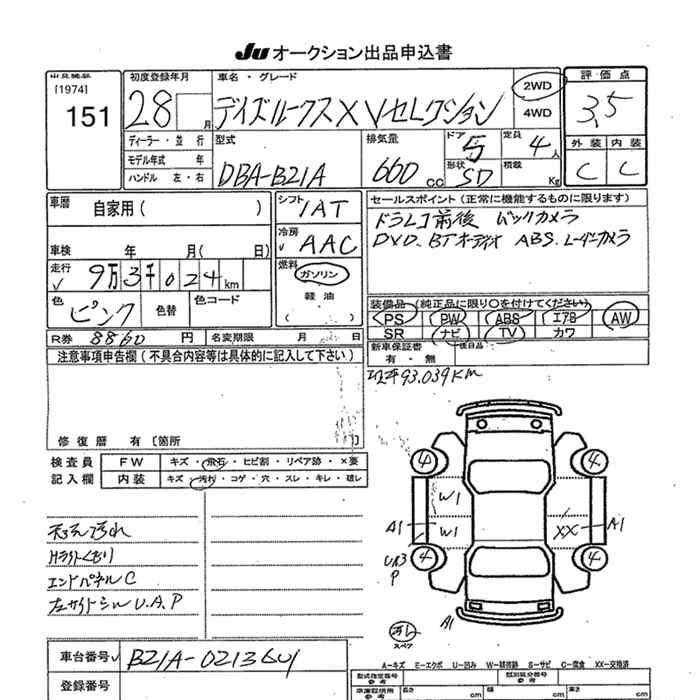 JU オークション出品申込書
出品機数
[1974]
151
初度登録年月
28 月
車名・グレード
デイズルークス X Vセレクション
2WD
4WD
評価点
3.5
外装 内装
C C
ディーラー・並行
モデル年式 年
ハンドル 左・右
型式
DBA-B21A
排気量
660 cc
ドア
5
形状
SD
定員
4人
積載
Kg
車歴
自家用( )
シフト
IAT
冷房
AAC
燃料
ガソリン
軽油
車検 年 月( 日)
走行
9万3千024km
色
ピンク
色替
色コード
R券 8860 円
名変期限 月 日
セールスポイント(正常に機能するものに限ります)
ドラレコ前後 バックカメラ
DVD.BTオーディオ ABS.レーダーカメラ
装備品(純正品に限り○を付けてください)
PS PW ABS エアB AW
SR ナビ TV カワ
新車保証書
有・無
後日品
93.039KM
注意事項申告欄(不具合内容等は具体的に記入して下さい)
修復歴 有〔箇所 〕
検査員
記入欄
FW キズ・飛石・ヒビ割・リペア跡・×要
内装 キズ・汚れ・コゲ・穴・スレ・キレ・破レ
天張汚れ
Hライトくもり
エンドパネルC
左サイドシルU.A.P
4 4
W1
A1 W1 XX A1
4 4
UA3
P
A1
スペア
車台番号 B21A-0213601
登録番号
A-キズ E-エクボ U-凹み W-補修跡 S-サビ C-腐食 XX-交換済
型式指定番号
参考
類別区分番号
参考
車庫証明用
参考
長さ cm
幅 cm
高さ cm